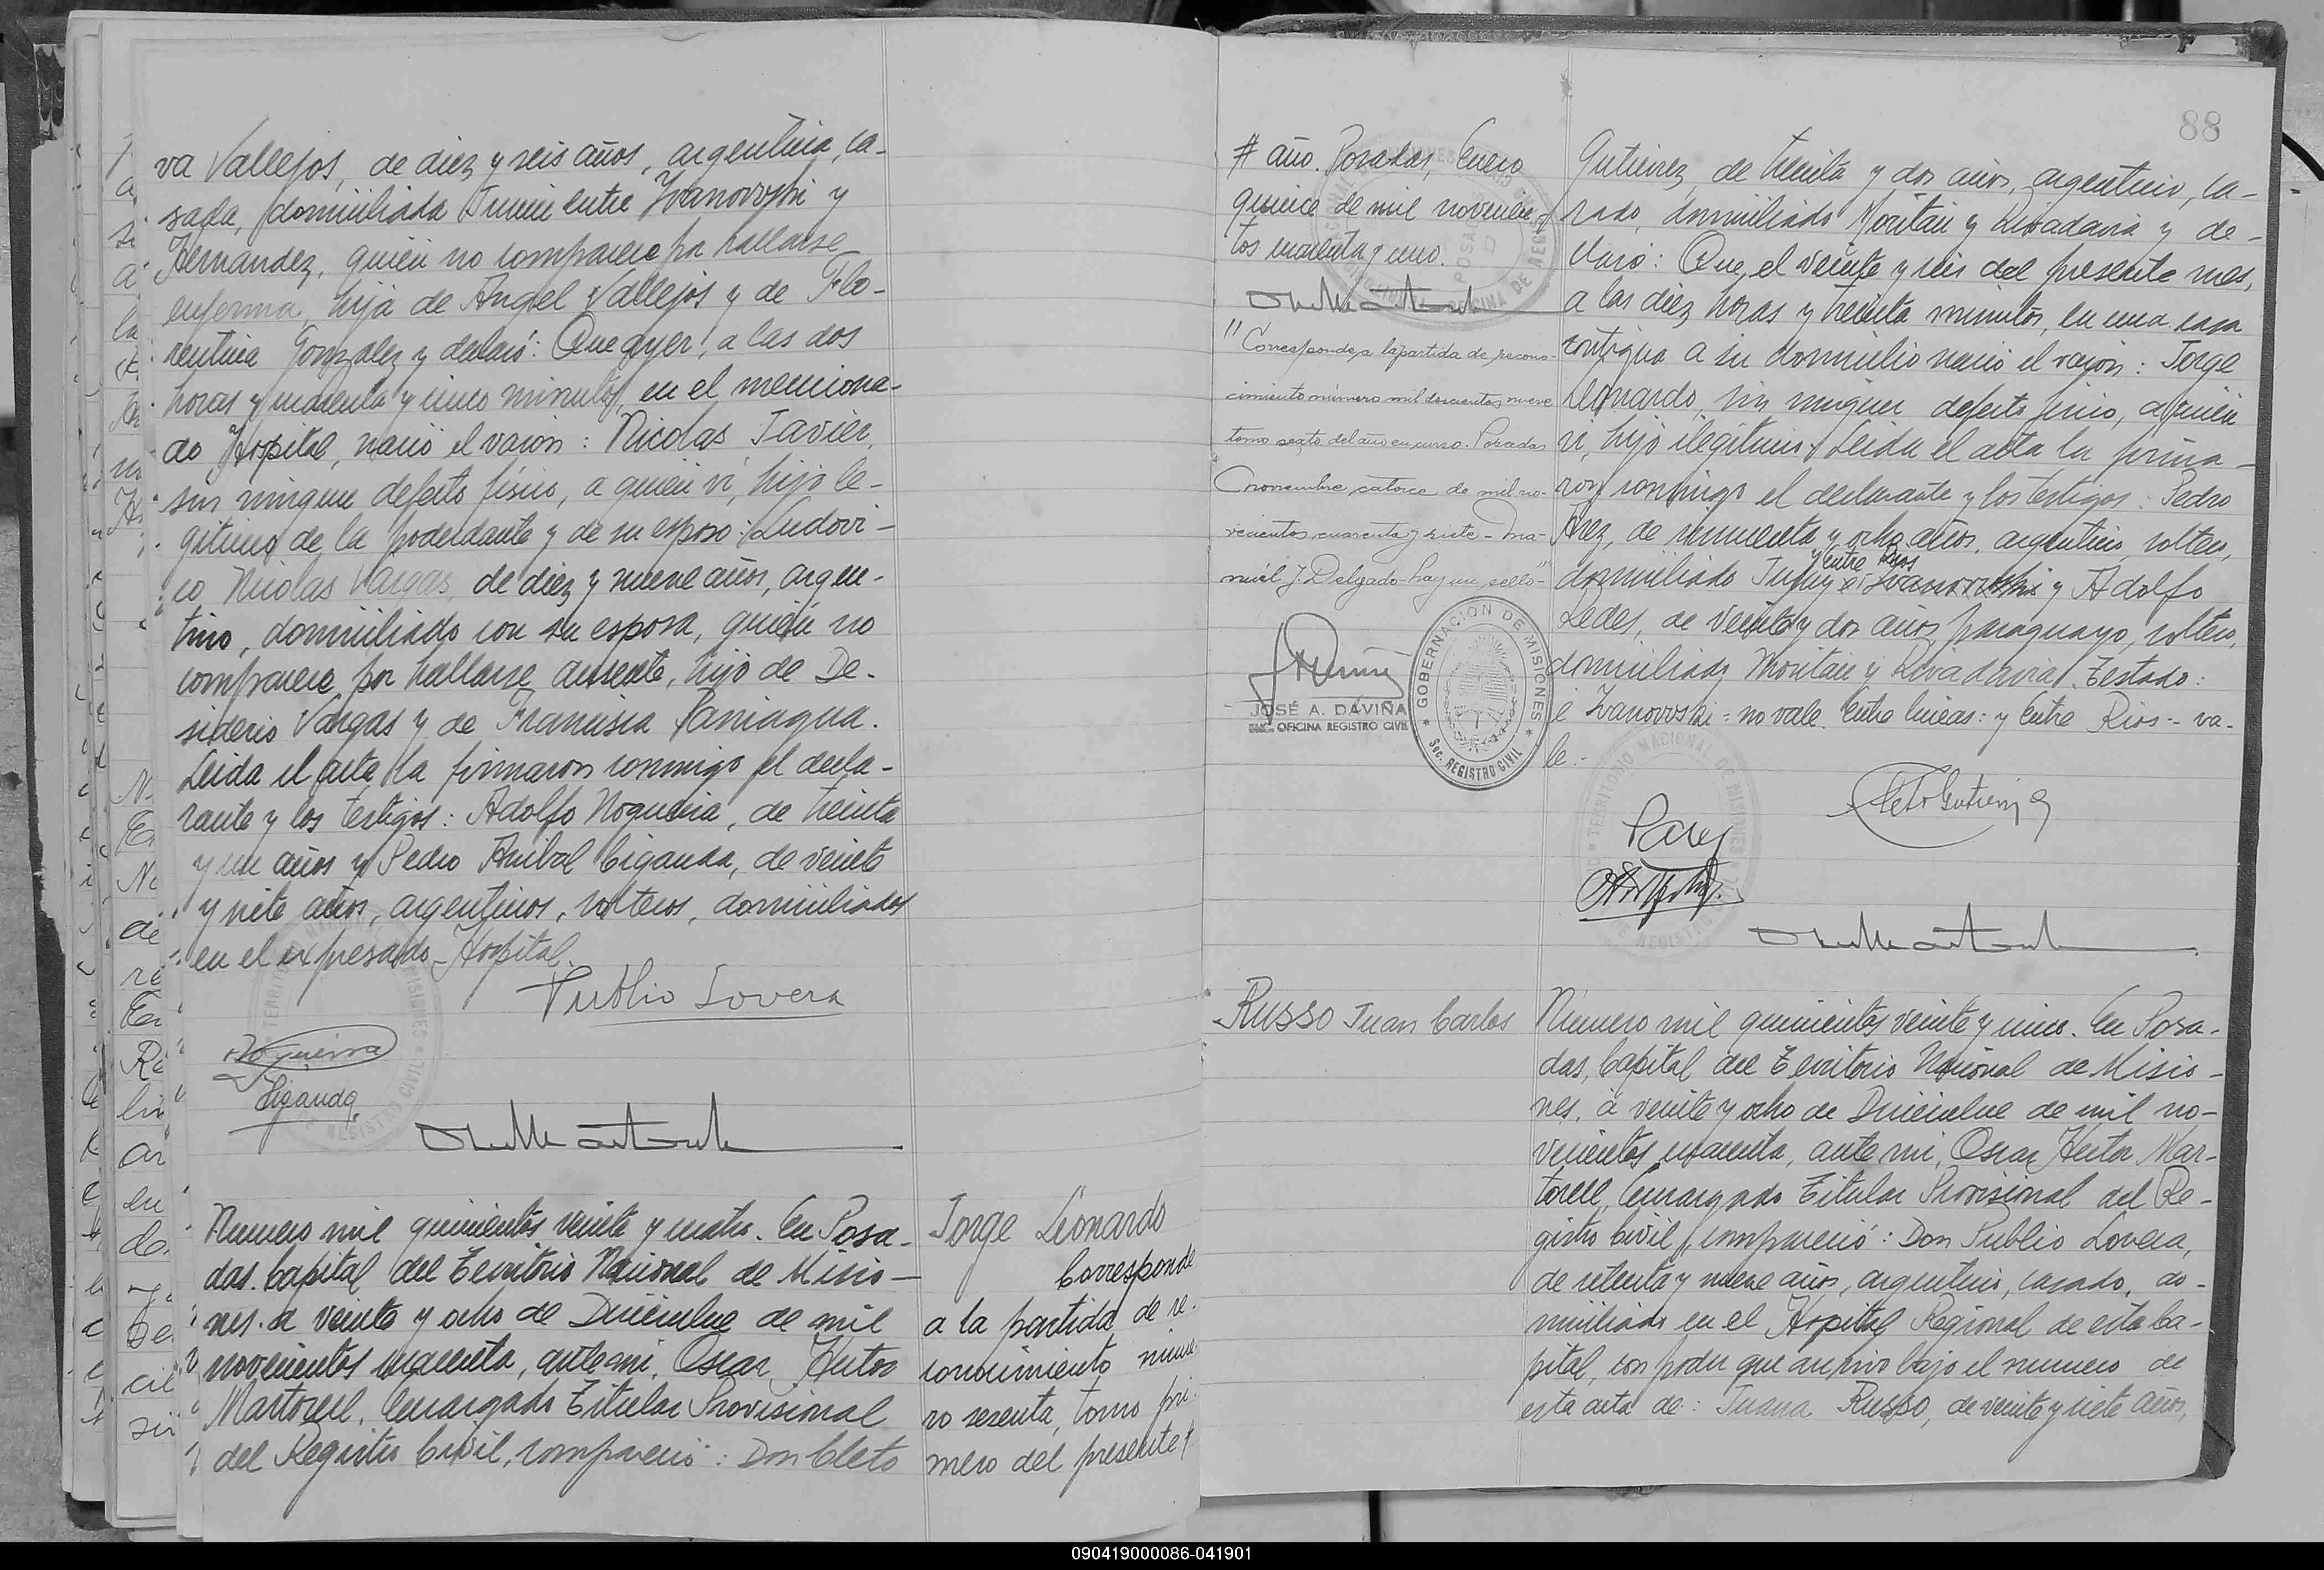 va Vallejos, de diez y seis años, argentina, ca-
sada, domiciliada Junin entre Ivanovvski y
Hernandez, quién no comparece por hallarse
enferma, hija de Angel Vallejos y de Flo-
rentina Gonzalez y declaró: Que ayer, a las dos
horas y cuarenta y cinco minutos, en el menciona-
do Hospital, nació el varón: Nicolas Javier,
sin ningun defecto físico, a quién ví, hijo le-
gitimo de la poderdante y de su esposo: Ludovi-
co Nicolas Vargas, de diez y nueve años, argen-
tino, domiciliado con su esposa, quién no
comparece por hallarse ausente, hijo de De-
siderio Vargas y de Francisca Paniagua.
Leida el acta la firmaron conmigo el decla-
rante y los testigos: Adolfo Nogueira, de treinta
y un años y Pedro Anibal Ciganda, de veinte
y siete años, argentinos, solteros, domiciliados
en el expresado Hospital.
Publio Lovera
Nogueira
Ciganda
Numero mil quinientos veinte y cuatro. En Posa-
das, Capital del Territorio Nacional de Misio-
nes, a veinte y ocho de Diciembre de mil
novecientos cuarenta, ante mi, Oscar Hector
Martorell, Encargado Titular Provisional
del Registro Civil, compareció: Don Cleto
Jorge Leonardo
Corresponde
a la partida de re-
conocimiento núme-
ro sesenta, tomo pri-
mero del presente #
88
# año. Posadas, Enero
quince de mil novecien-
tos cuarenta y uno.
"Corresponde a la partida de recono-
cimiento número mil doscientos nueve
tomo sexto del año en curso. Posadas
Cnoviembre catorce de mil no-
vecientos cuarenta y siete - Ma-
nuel J. Delgado - hay un sello -"
JOSÉ A. DAVIÑA
ENC. OFICINA REGISTRO CIVIL
GOBERNACION DE MISIONES
Sec. REGISTRO CIVIL
Gutierrez, de treinta y dos años, argentino, ca-
sado, domiciliado Moritán y Rivadavia y de-
claró: Que, el veinte y seis del presente mes,
a las diez horas y treinta minutos, en una casa
contigua a su domicilio nació el varón: Jorge
Leonardo, sin ningun defecto físico, a quién
ví, hijo ilegitimo. Leida el acta la firma-
ron conmigo el declarante y los testigos: Pedro
Arez, de cincuenta y ocho años, argentino, soltero,
y Entre Rios
domiciliado Jujuy é Ivanovvski y Adolfo
Ledes, de veinte y dos años, paraguayo, soltero,
domiciliado Moritán y Rivadavia. Testado:
é Ivanovvski = no vale. Entre lineas: y Entre Rios - va-
le.-
Cleto Gutierrez
TERRITORIO NACIONAL DE MISIONES
Russo Juan Carlos
Numero mil quinientos veinte y cinco. En Posa-
das, Capital del Territorio Nacional de Misio-
nes, a veinte y ocho de Diciembre de mil no-
vecientos cuarenta, ante mi, Oscar Hector Mar-
torell, Encargado Titular Provisional del Re-
gistro Civil, compareció: Don Publio Lovera,
de setenta y nueve años, argentino, casado, do-
miciliado en el Hospital Regional de esta Ca-
pital, con poder que archivo bajo el numero de
esta acta de: Juana Russo, de veinte y siete años,
090419000086-041901